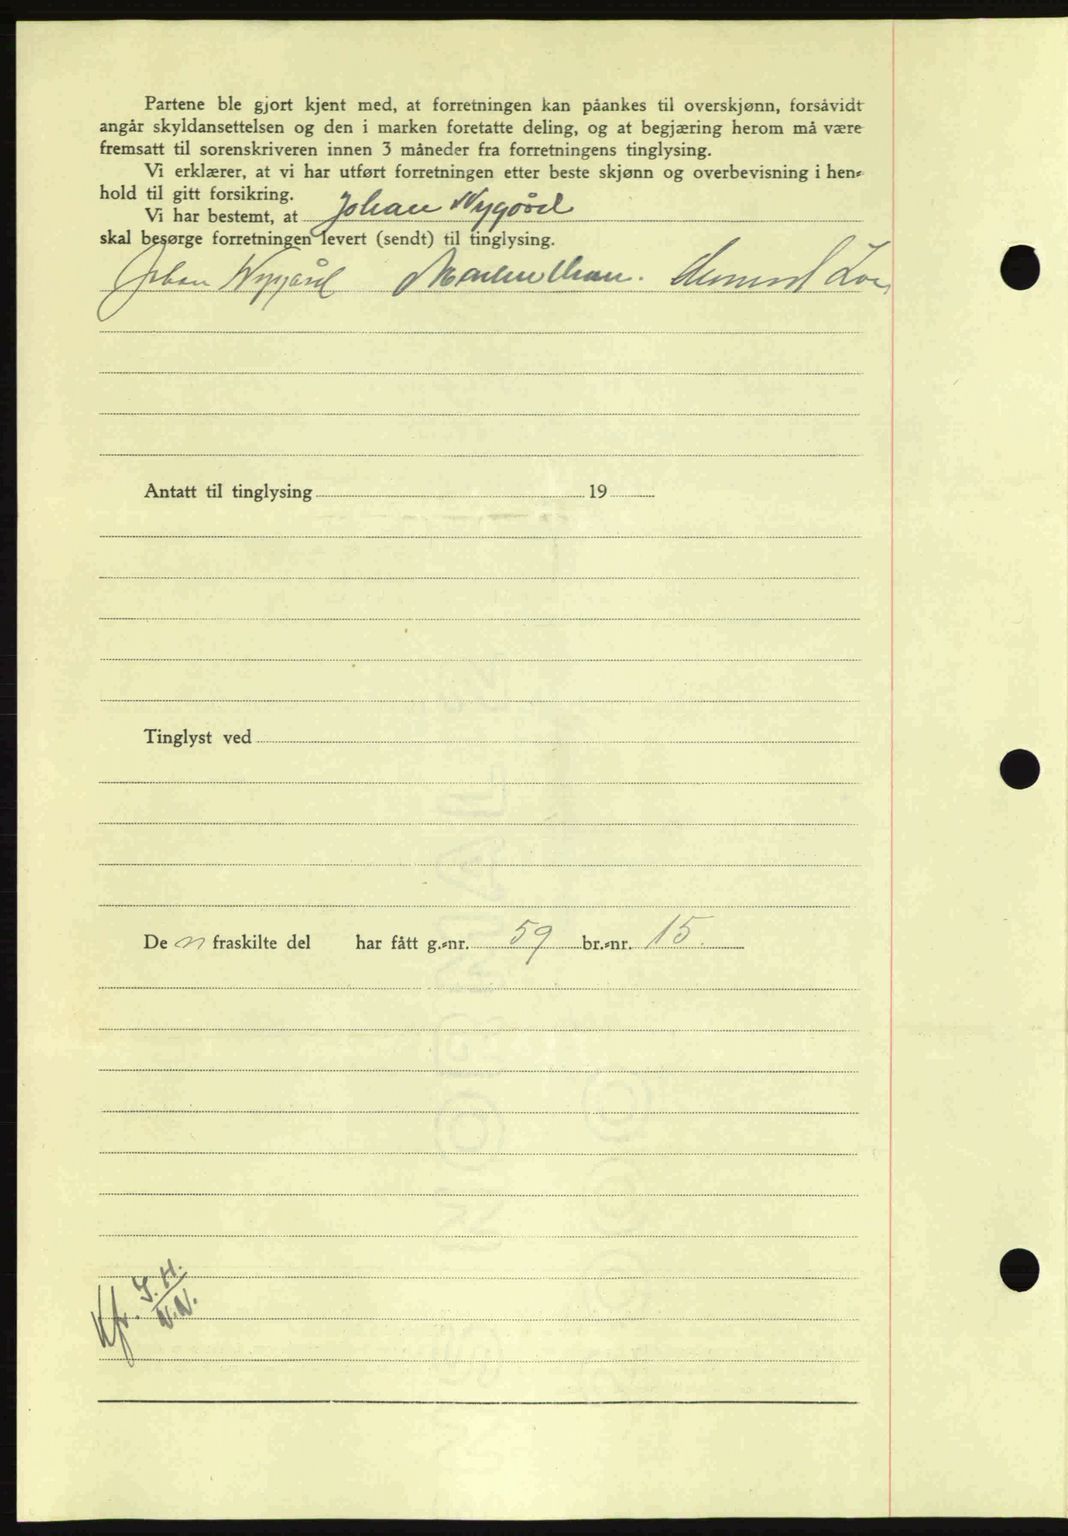 Partene ble gjort kjent med, at forretningen kan påankes til overskjønn, forsåvidt
angår skyldansettelsen og den i marken foretatte deling, og at begjæring herom må være
fremsatt til sorenskriveren innen 3 måneder fra forretningens tinglysing.
Vi erklærer, at vi har utført forretningen etter beste skjønn og overbevisning i hen-
hold til gitt forsikring.
Vi har bestemt, at Johan Nygård
skal besørge forretningen levert (sendt) til tinglysing.
Johan Nygård
Antatt til tinglysing 19
Tinglyst ved
De n fraskilte del har fått g.-nr. 59 br.-nr. 15.
Kfr. J.H.
N.N.